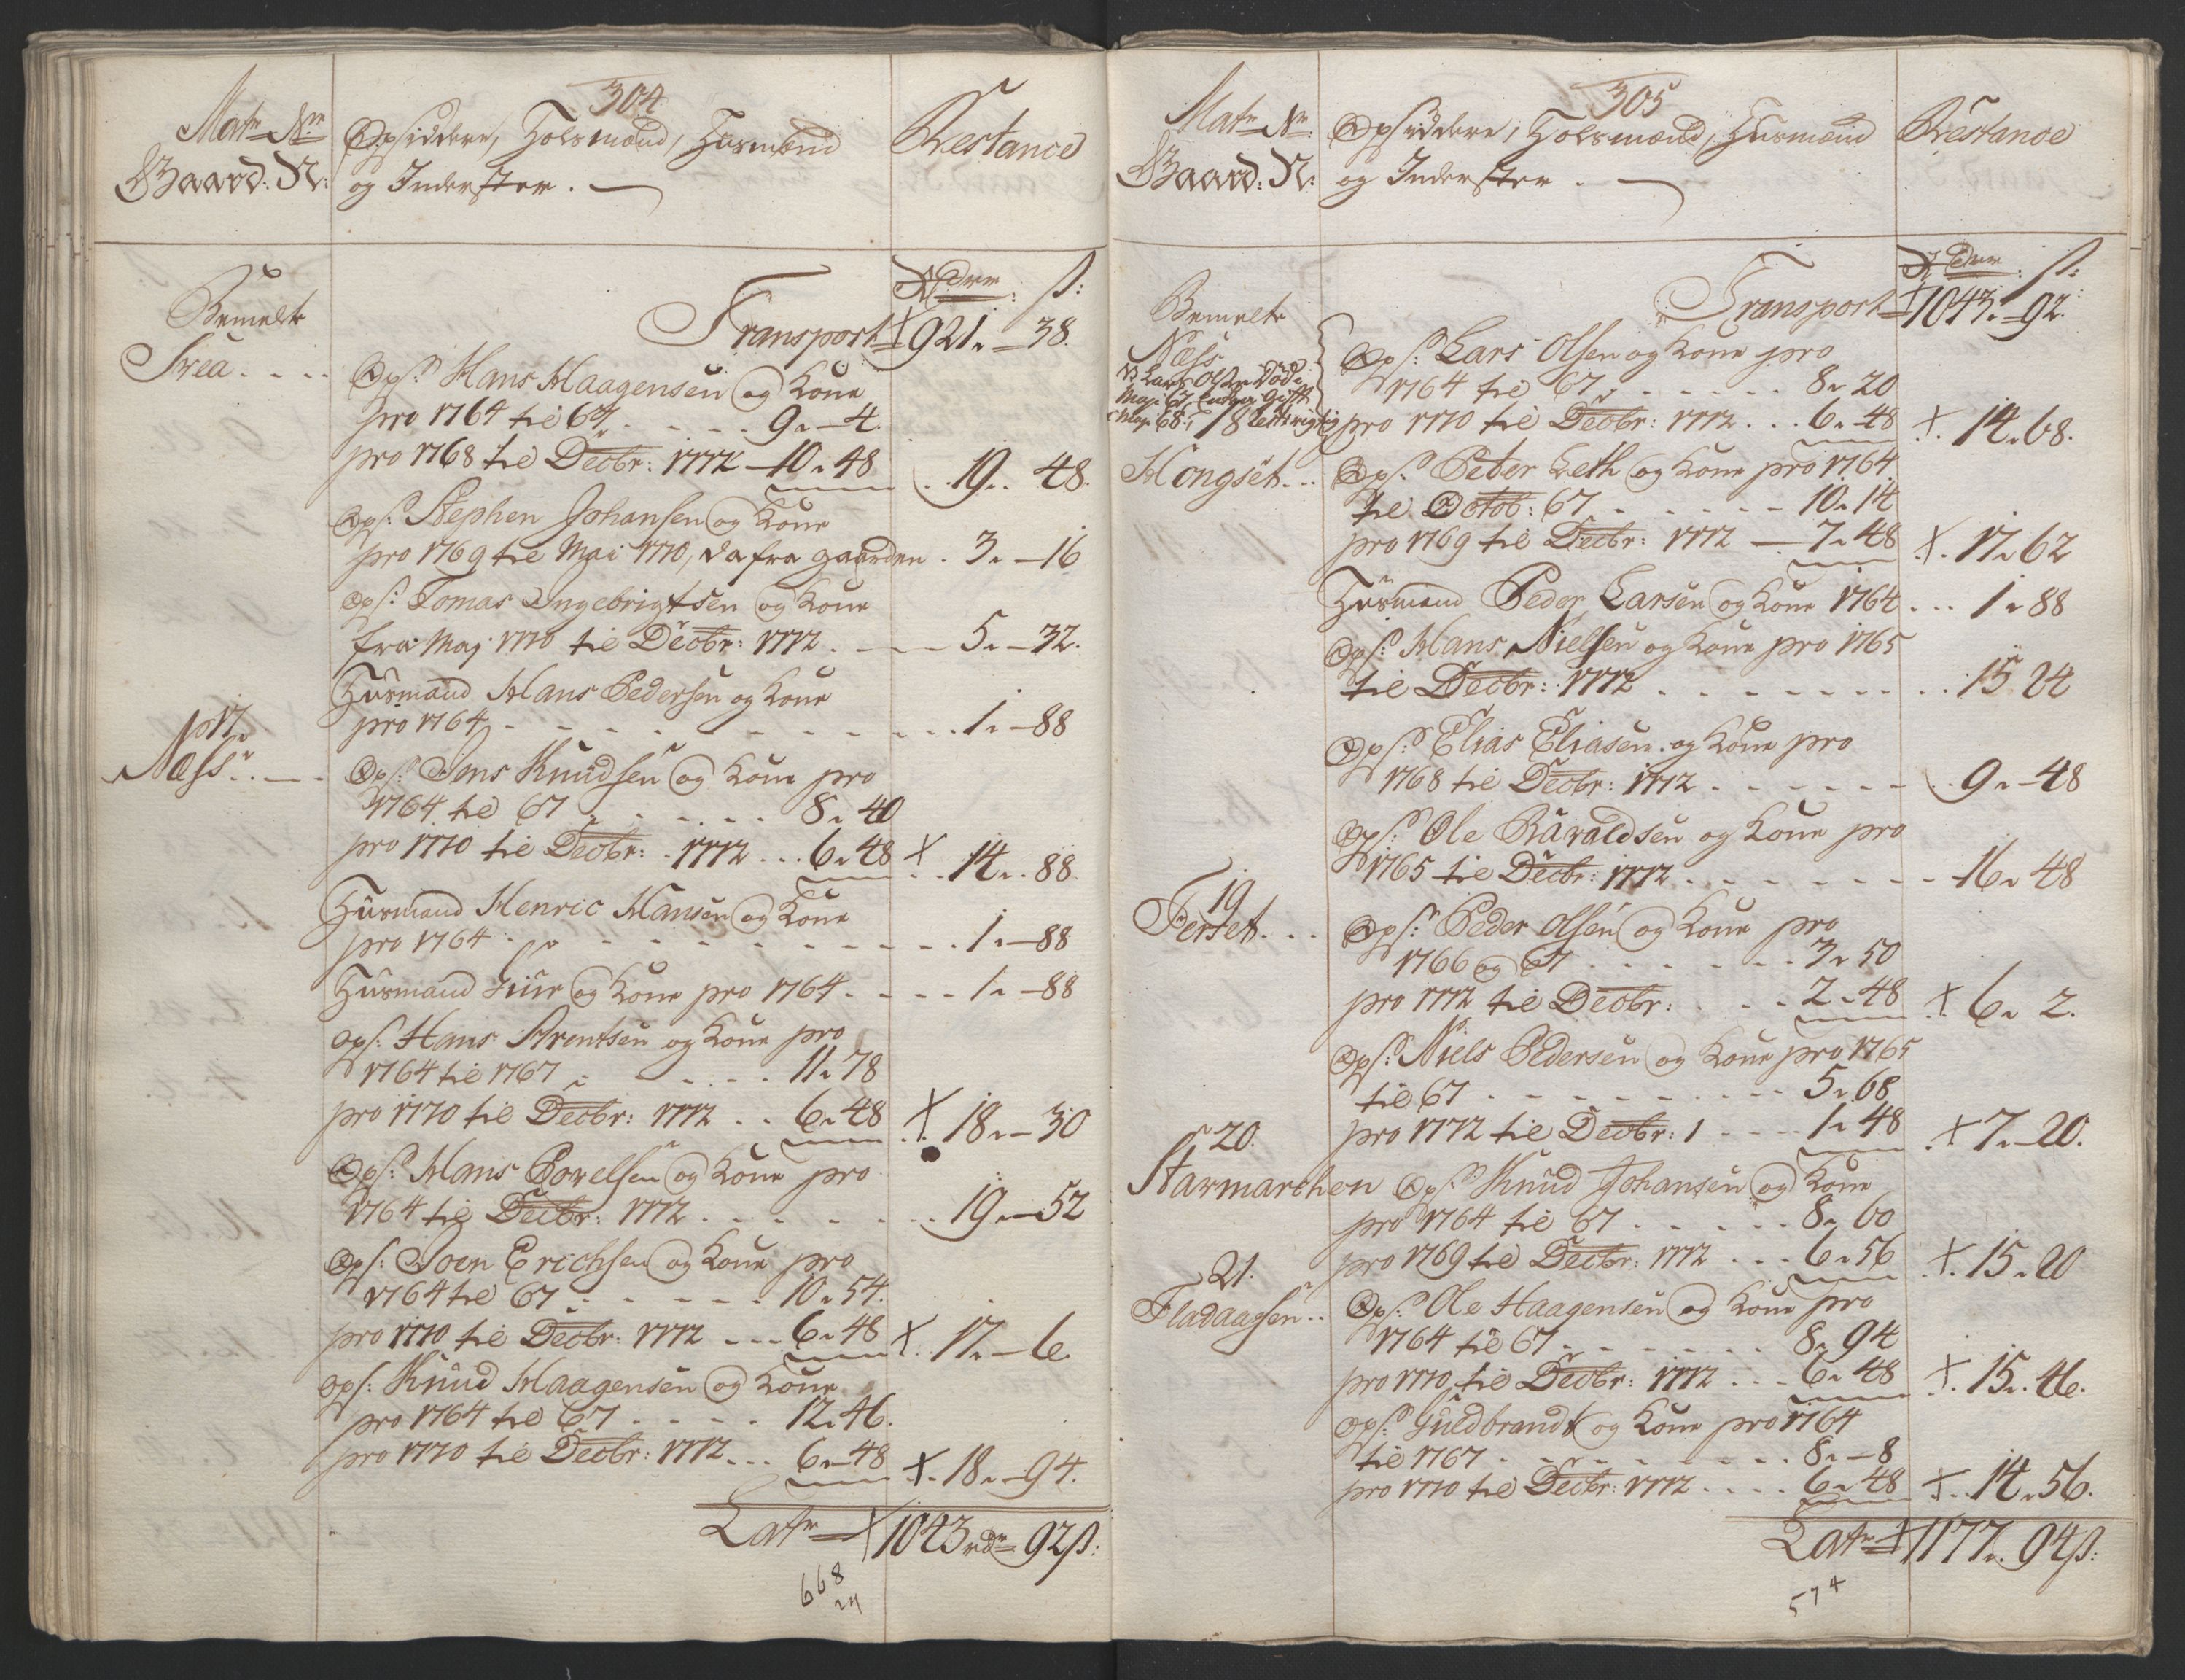 304
Matr Nr:
Gaard: N:
Opsiddere, Holsmænd, Husmænd
og Inderster.
Restance
Rdr: ß:
Bemelte
Transport 921 - 38.
Svea
Ops: Hans Haagensen og Kone
pro 1764 til 67 . . . 9 - 4.
pro 1768 til Decbr: 1772 - 10 - 48
19 - 48.
Ops: Stephen Johansen og Kone
pro 1769 til Mai 1770, da fra gaarden . 3 - 16
Ops: Tomas Ingebrigtsen og Kone
fra Maj 1770 til Decbr: 1772 . 5 - 32.
Husmand Hans Pedersen og Kone
pro 1764 . . . 1 - 88
17.
Næss
Ops: Jens Knudsen og Kone pro
1764 til 67 . . . 8 - 40
pro 1770 til Decbr: 1772 . . . 6 - 48 X 14 - 88
Husmand Henric Hansen og Kone
pro 1764 . . . 1 - 88
Husmand Siur og Kone pro 1764 . . . 1 - 88
Ops: Hans Arentsen og Kone pro
1764 til 1767 . . . 11 - 78
pro 1770 til Decbr: 1772 . . 6 - 48 X 18 - 30
Ops: Hans Povelsen og Kone pro
1764 til Decbr: 1772 . . . 19 - 52
Ops: Joen Erichsen og Kone pro
1764 til 67 . . . 10 - 54.
pro 1770 til Decbr: 1772 . . . 6 - 48 X 17 - 6
Ops: Knud Haagensen og Kone
pro 1764 til 67 . . . 12 - 46.
pro 1770 til Decbr: 1772 . . . 6 - 48 X 18 - 94.
Latr X 1043 rdr 92 ß:
668
24
305
Matr Nr:
Gaard: N:
Opsiddere, Holsmænd, Husmænd
og Inderster.
Restance
Rdr: ß:
Transport X 1043 - 92.
Bemelte
Næss
Lars Olsen død
Maj 67
Maj 68
Ops: Lars Olsen og Kone pro
1764 til 67 . . . 8 - 20
pro 1770 til Decbr: 1772 . . . 6 - 48 X 14 - 68.
18
Hongset
Ops: Peter Leth og Kone pro 1764
til Octob: 67 . . . 10 - 14
pro 1769 til Decbr: 1772 - 7 - 48 X 17 - 62
Husmand Peder Larsen og Kone 1764 . . . 1 - 88
Ops: Hans Nielsen og Kone pro 1765
til Decbr: 1772 . . . 15 24
Ops: Elias Eliasen og Kone pro
1768 til Decbr: 1772 . . . 9 - 48
Ops: Ole Ravaldsen og Kone pro
1765 til Decbr: 1772 . . . 16 - 48
19
Ferset
Ops: Peder Olsen og Kone pro
1766 og 67 . . . 3 - 50
pro 1772 til Decbr: . . . 2 - 48 X 6 - 2.
Ops: Niels Pedersen og Kone pro 1765
til 67 . . . 5 - 68
pro 1772 til Decbr: 1 . . . 1 - 48 X 7 - 20.
20.
Starmarchen Ops: Knud Johansen og Kone
pro 1764 til 67 . . . 8 - 60
pro 1769 til Decbr: 1772 . . . 6 - 56 X 15 - 20
21.
Fladaasen
Ops: Ole Haagensen og Kone pro
1764 til 67 . . . 8 - 94
pro 1770 til Decbr: 1772 . . . 6 - 48 X 15 - 46.
Ops: Guldbrandt og Kone pro 1764
til 1767 . . . 8 - 8
pro 1770 til Decbr: 1772 . . . 6 - 48 X 14 - 56.
Latr X 1177 - 94 ß:
574